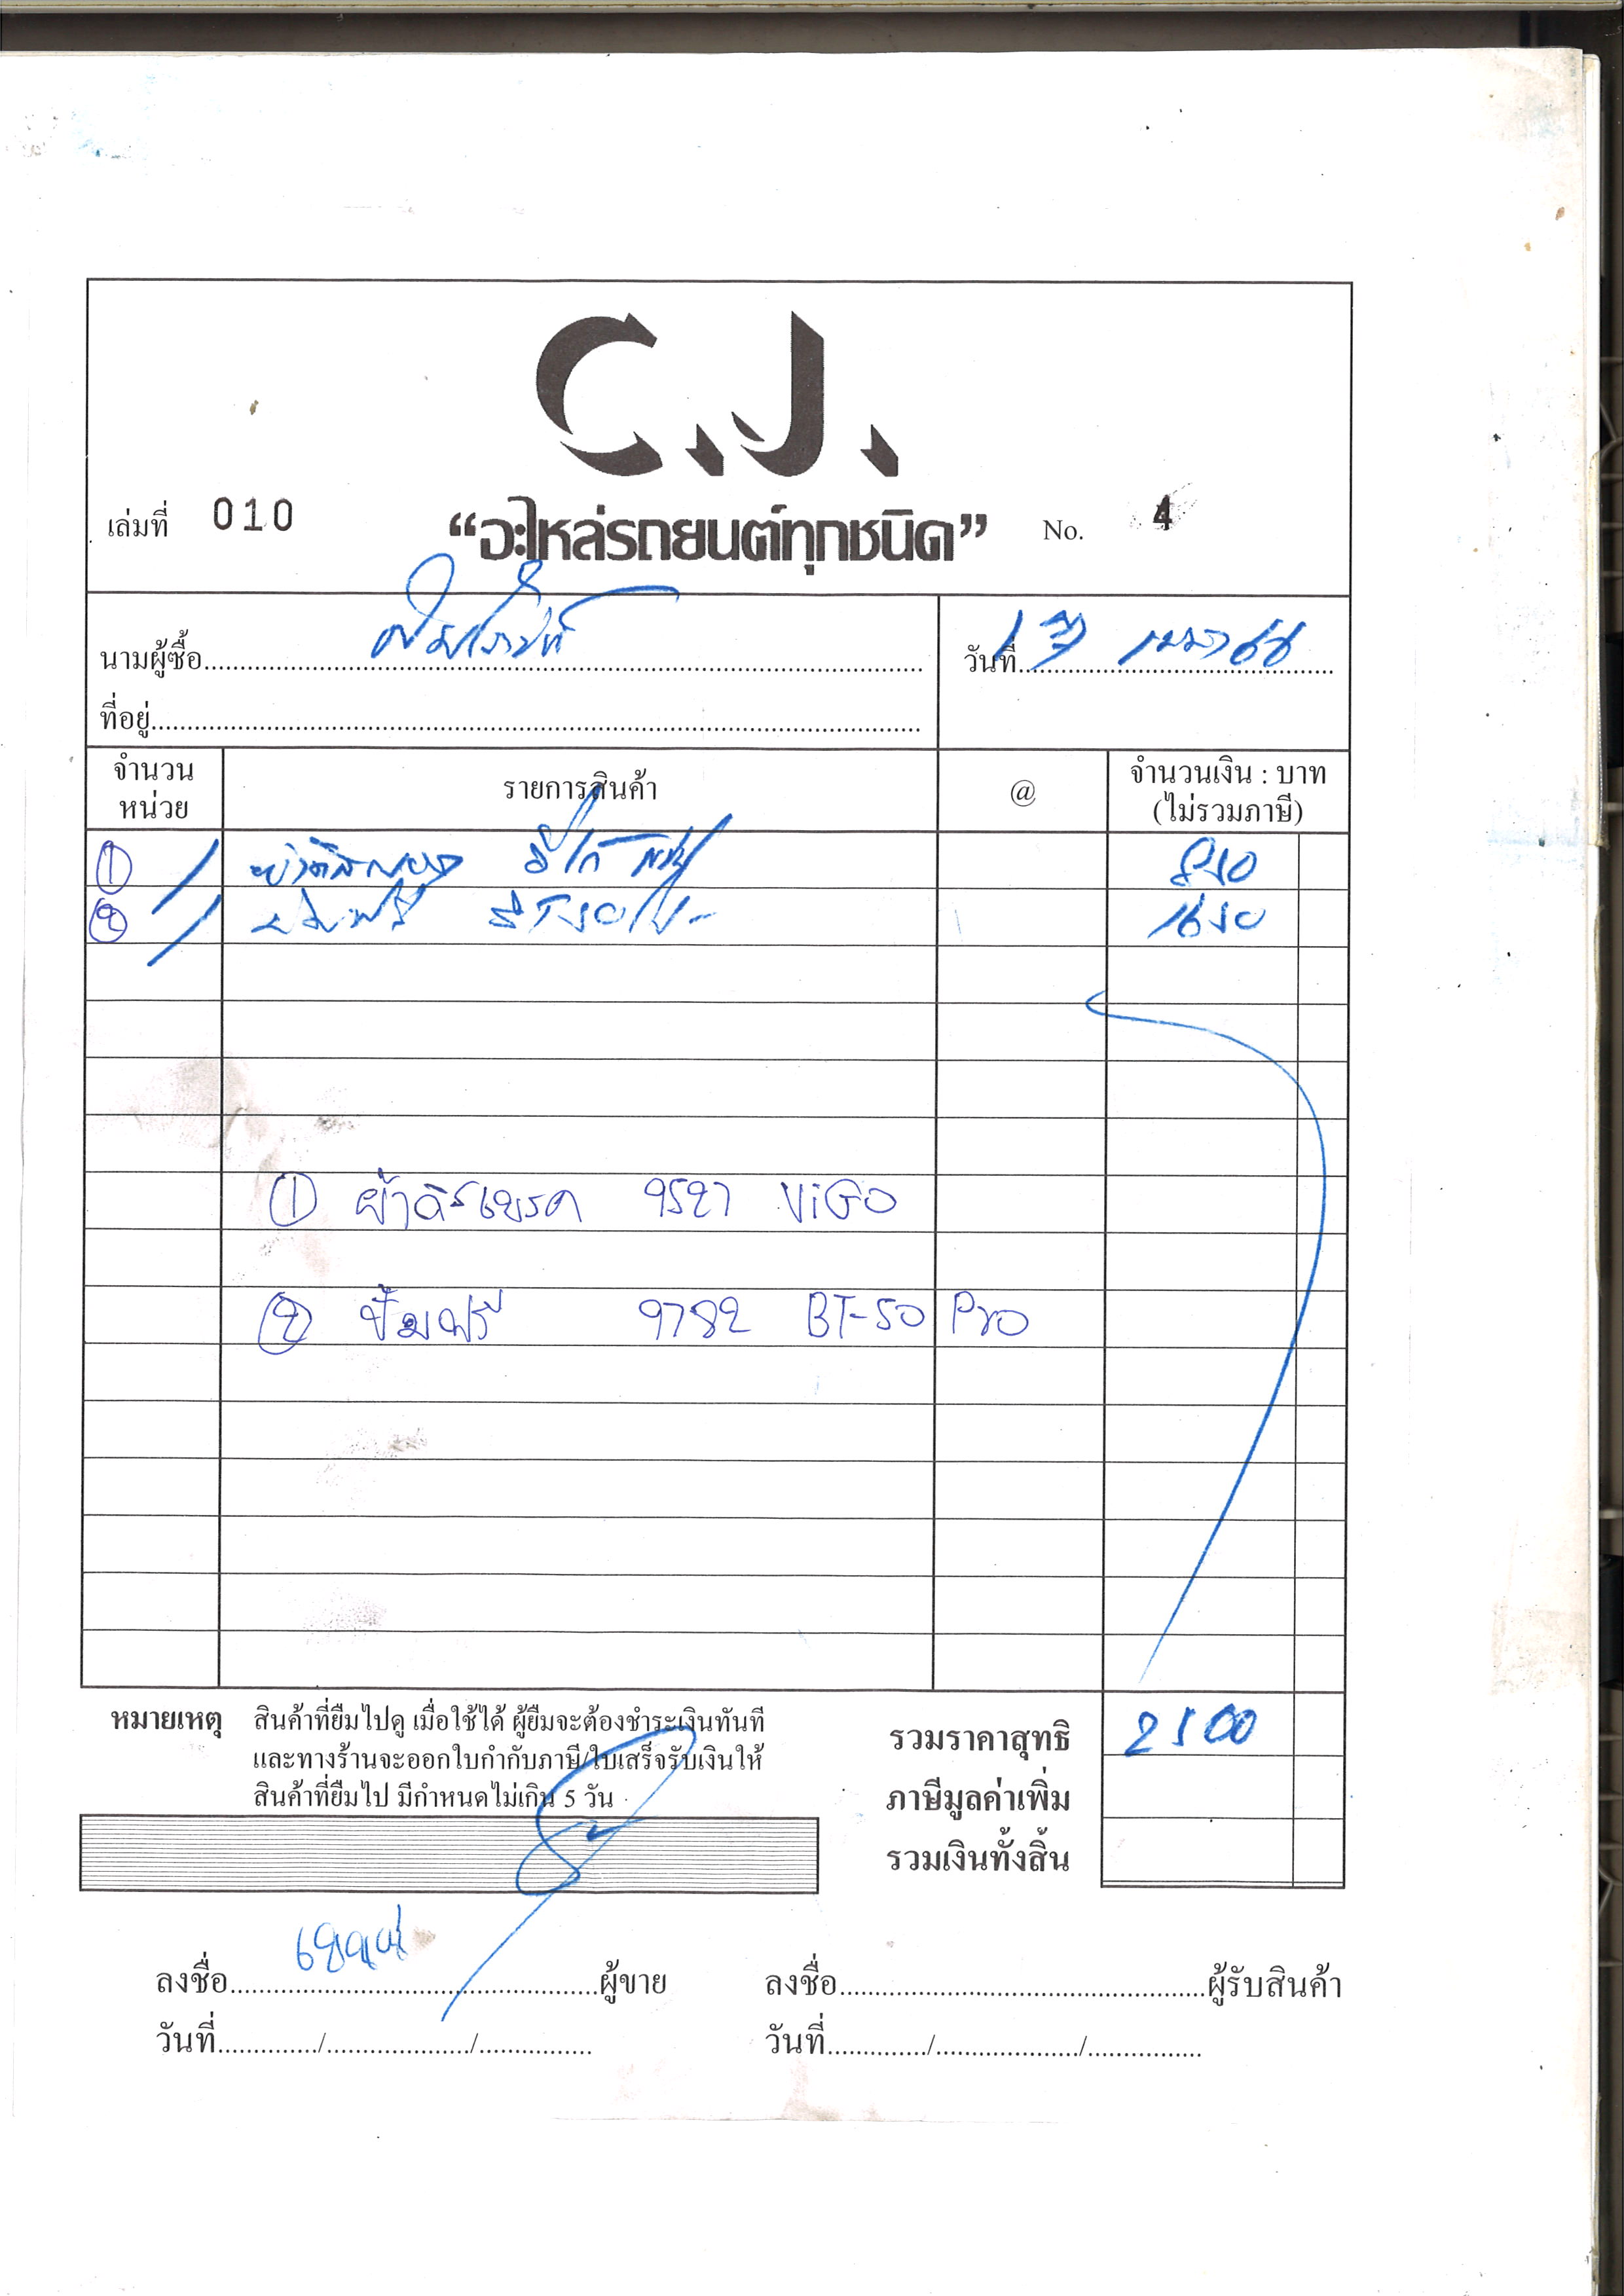 C.J.
เล่มที่ 010 “อะไหล่รถยนต์ทุกชนิด” No. 4
นามผู้ซื้อ
วันที่ 66
ที่อยู่
จำนวนหน่วย รายการสินค้า @ จำนวนเงิน : บาท (ไม่รวมภาษี)
① 1 850
② 1 1650
① ผ้าดิสเบรค 9527 ViGO
② ปั้มฟรี 9782 BT-50 Pro
หมายเหตุ สินค้าที่ยืมไปดู เมื่อใช้ได้ ผู้ยืมจะต้องชำระเงินทันที
และทางร้านจะออกใบกำกับภาษี/ใบเสร็จรับเงินให้
สินค้าที่ยืมไป มีกำหนดไม่เกิน 5 วัน
รวมราคาสุทธิ 2500
ภาษีมูลค่าเพิ่ม
รวมเงินทั้งสิ้น
ลงชื่อ ผู้ขาย ลงชื่อ ผู้รับสินค้า
วันที่ / / วันที่ / /